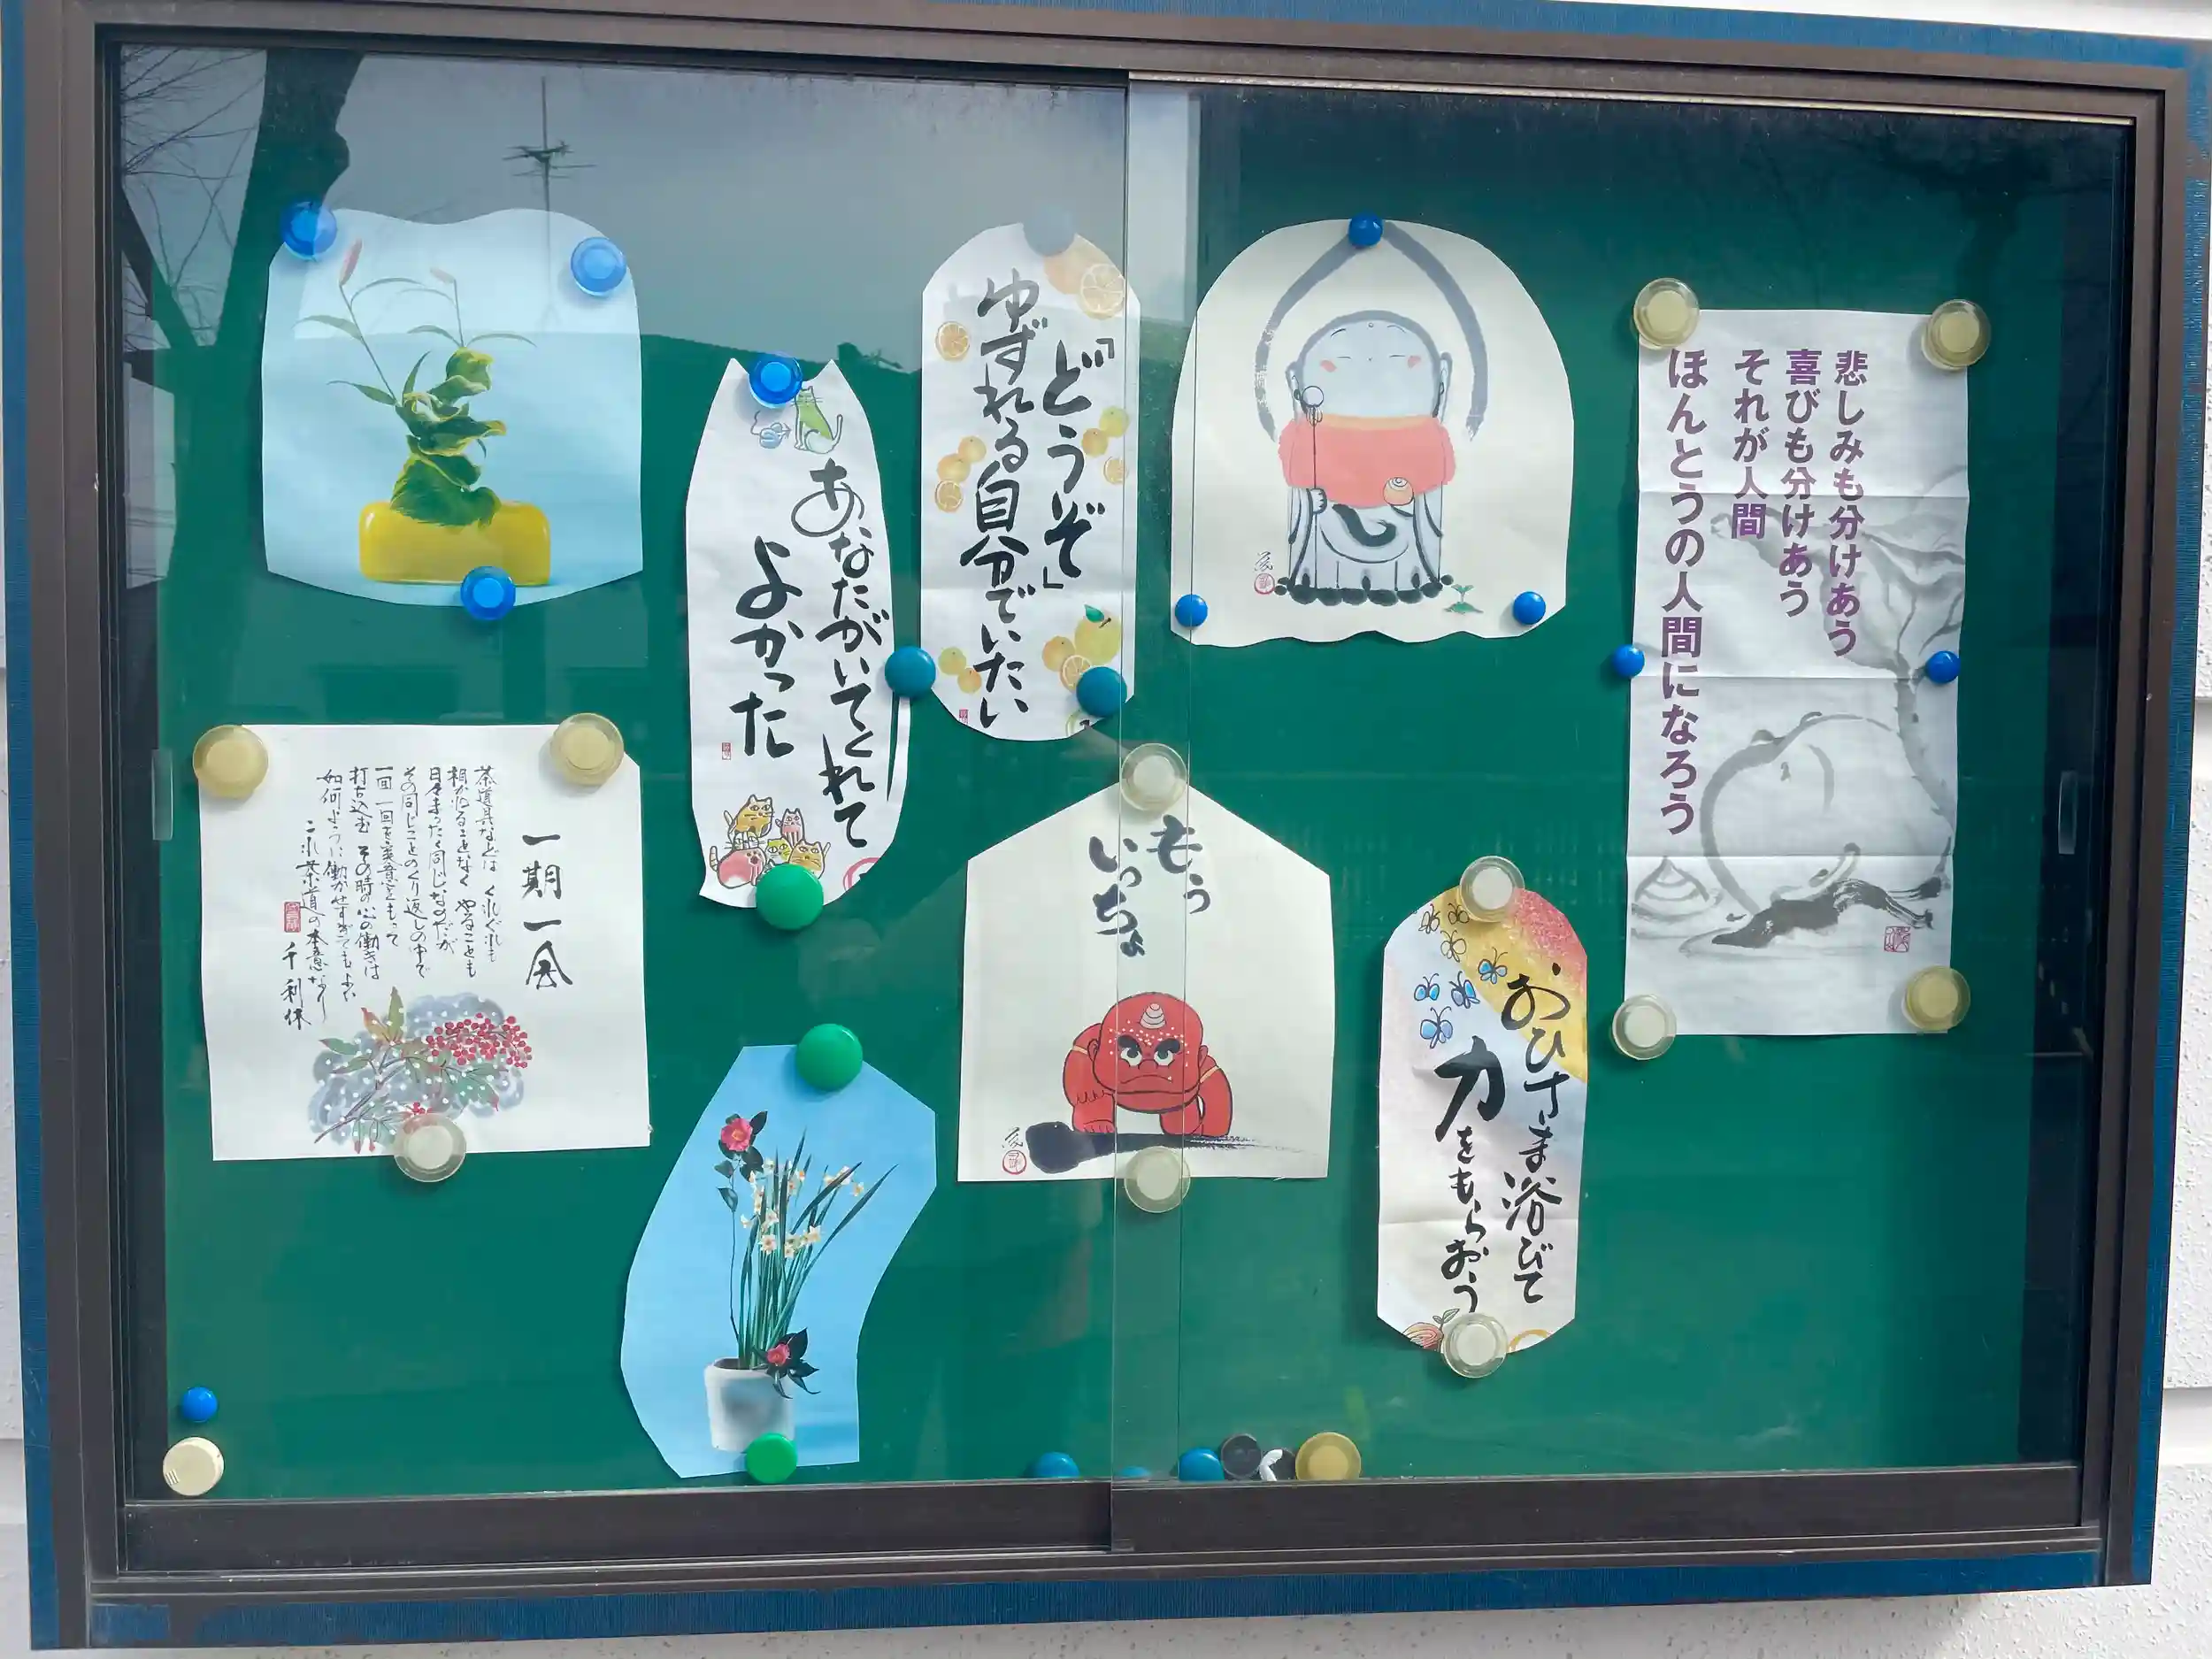 悲しみも分けあう
喜びも分けあう
それが人間
ほんとうの人間になろう
「どうぞ」
ゆずれる自分でいたい
あなたがいてくれて
よかった
一期一会
茶道具などは くれぐれも
相かわることなく やることも
日々まったく同じなのだが
その同じことのくり返しの中で
一回一回を誠意をもって
打ち込む その時の心の働きは
如何ように働かせすぎてもよい
これ茶道の本意なり
千利休
もう
いっちょ
おひさま浴びて
力をもらおう